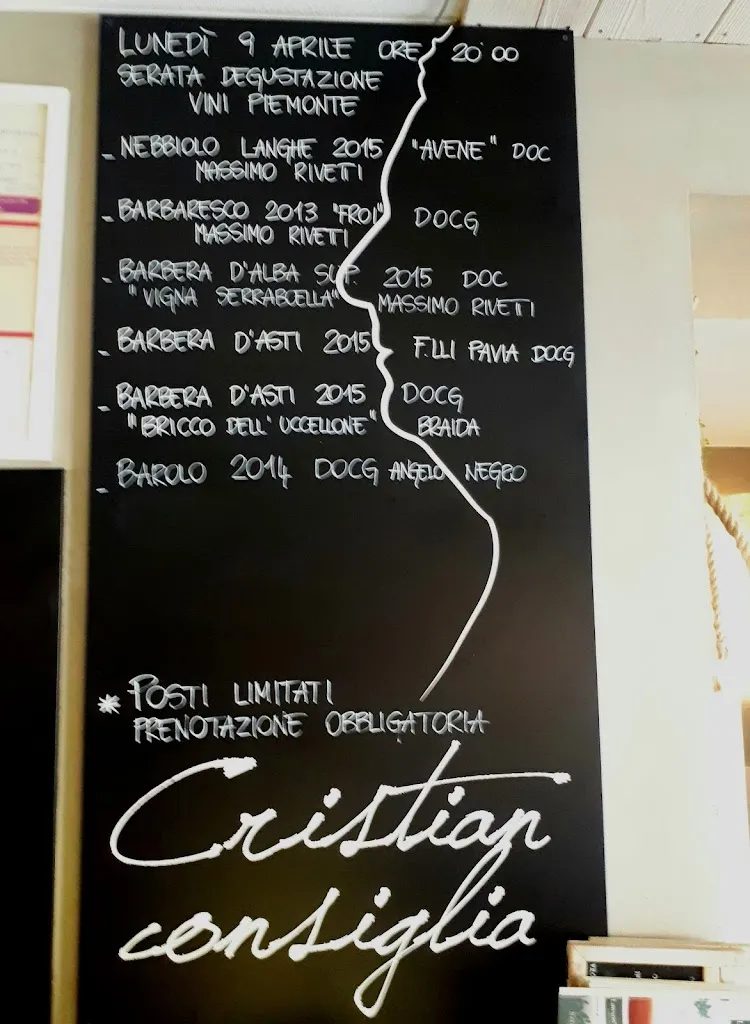 LUNEDÌ 9 APRILE ORE 20:00
SERATA DEGUSTAZIONE
VINI PIEMONTE
- NEBBIOLO LANGHE 2015 "AVENE" DOC
MASSIMO RIVETI
- BARBARESCO 2013 "FROI" DOCG
MASSIMO RIVETTI
- BARBERA D'ALBA SUP. 2015 DOC
"VIGNA SERRABOELLA" MASSIMO RIVETTI
- BARBERA D'ASTI 2015 F.LLI PAVIA DOCG
- BARBERA D'ASTI 2015 DOCG
"BRICCO DELL'UCCELLONE" BRAIDA
- BAROLO 2014 DOCG ANGELO NEGRO
* POSTI LIMITATI
PRENOTAZIONE OBBLIGATORIA
Cristian
consiglia